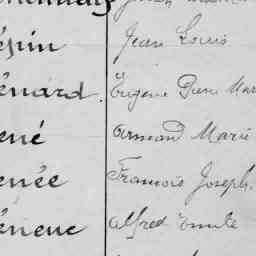 épin Jean Louis
énard. Eugène Pierre Mar
ené Armand Marie
enée François Joseph.
éneuc Alfred Emile